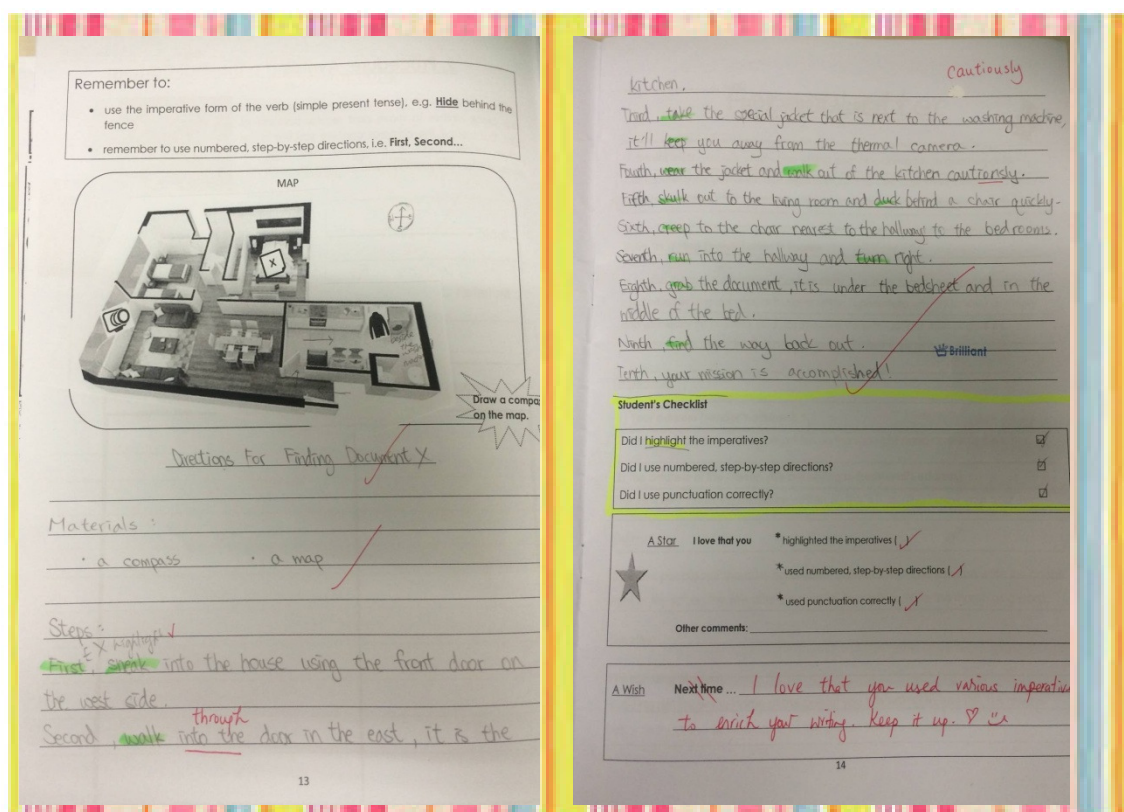 Remember to:
• use the imperative form of the verb (simple present tense), e.g. Hide behind the
fence
• remember to use numbered, step-by-step directions, i.e. First, Second...
MAP
X
Draw a compa
on the map.
Directions For Finding Document X
Materials :
· a compass · a map
Steps :
X highlight
First, sneak into the house using the front door on
the west side.
through
Second, walk into the door in the east, it is the
13
cautiously
kitchen.
Third, take the special jacket that is next to the washing machine,
it'll keep you away from the thermal camera.
Fourth, wear the jacket and walk out of the kitchen cautionsly.
Fifth, skulk out to the living room and duck behind a chair quickly.
Sixth, creep to the chair nearest to the hallway to the bedrooms.
Seventh, run into the hallway and turn right.
Eighth, grab the document, it is under the bedsheet and in the
middle of the bed.
Ninth, find the way back out.
Brilliant
Tenth, your mission is accomplished!
Student's Checklist
Did I highlight the imperatives?
Did I use numbered, step-by-step directions?
Did I use punctuation correctly?
A Star I love that you * highlighted the imperatives ( )
* used numbered, step-by-step directions ( )
* used punctuation correctly ( )
Other comments:
A Wish Next time ... I love that you used various imperative
to enrich your writing. Keep it up.
14